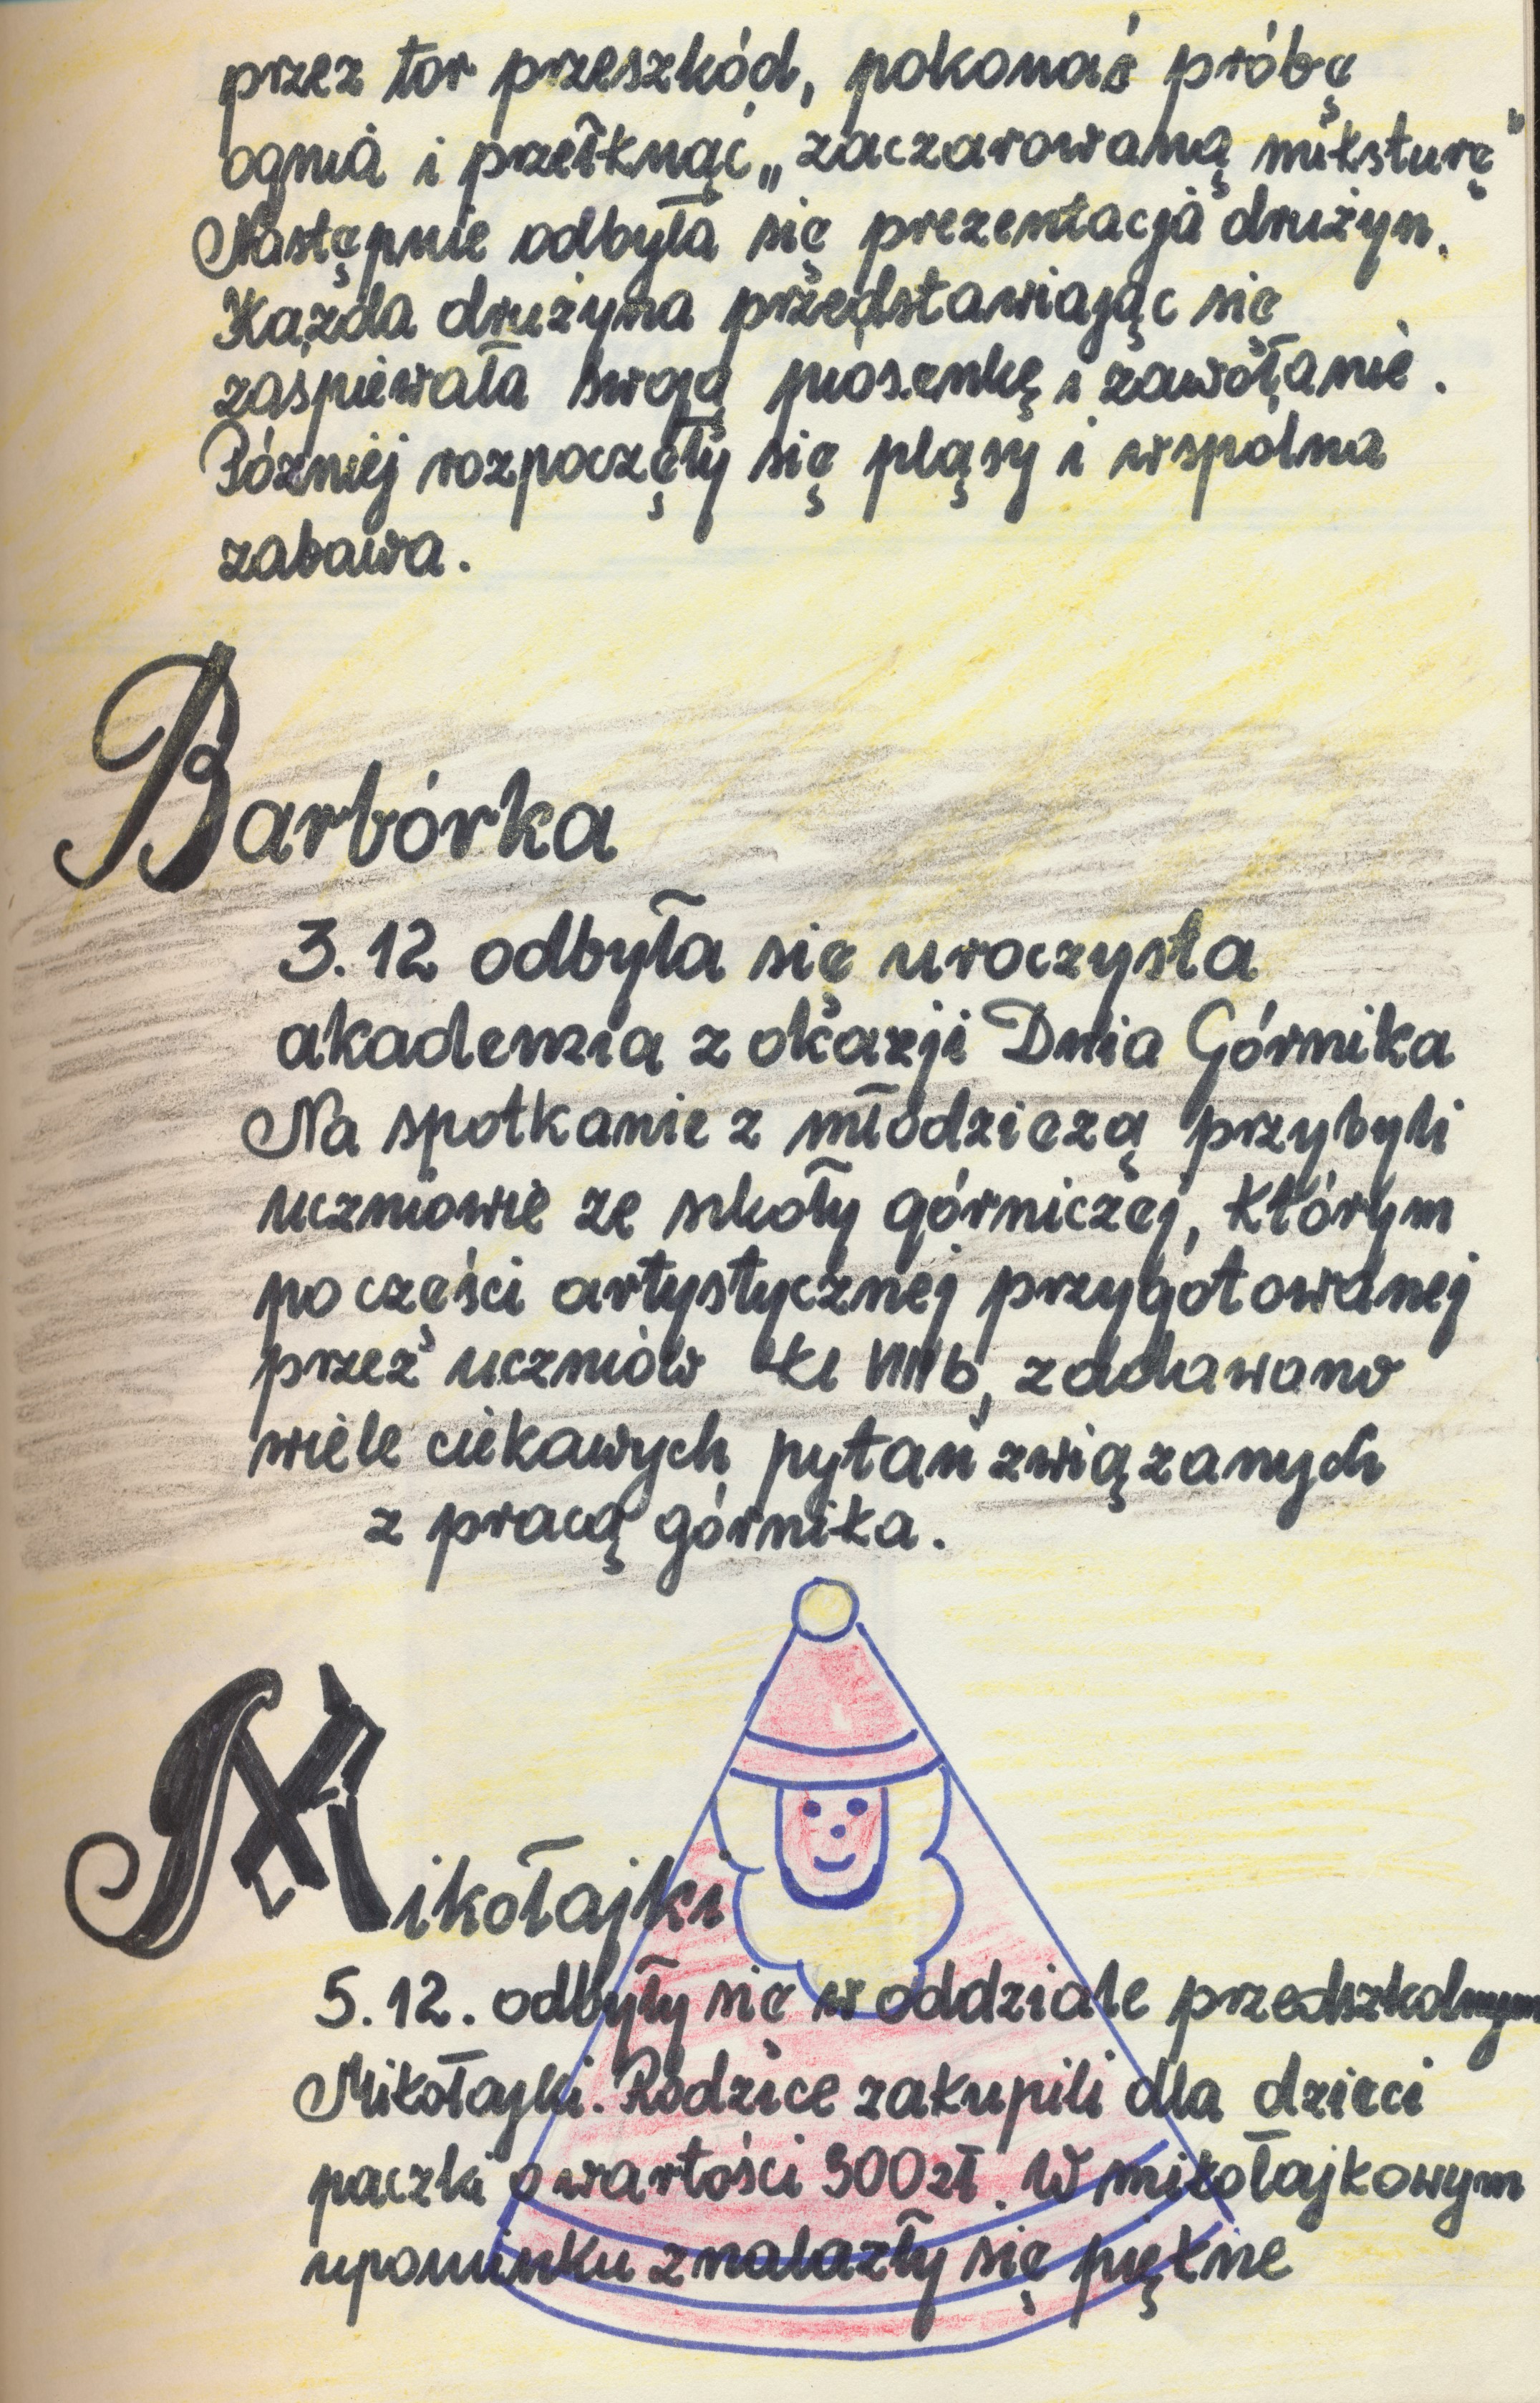 przez tor przeszkód, pokonać próbę
ognia i przełknąć „zaczarowaną miksturę"
Następnie odbyła się prezentacja drużyn.
Każda drużyna przedstawiając się
zaśpiewała swoją piosenkę i zawołanie.
Później rozpoczęły się pląsy i wspólna
zabawa.
Barbórka
3.12 odbyła się uroczysta
akademia z okazji Dnia Górnika
Na spotkanie z młodzieżą przybyli
uczniowie ze szkoły górniczej, którym
po części artystycznej przygotowanej
przez uczniów kl VIII b, zadawano
wiele ciekawych pytań związanych
z pracą górnika.
Mikołajki
5.12. odbyły się w oddziale przedszkolnym
Mikołajki. Rodzice zakupili dla dzieci
paczki o wartości 300zł. W mikołajkowym
upominku znalazły się piękne